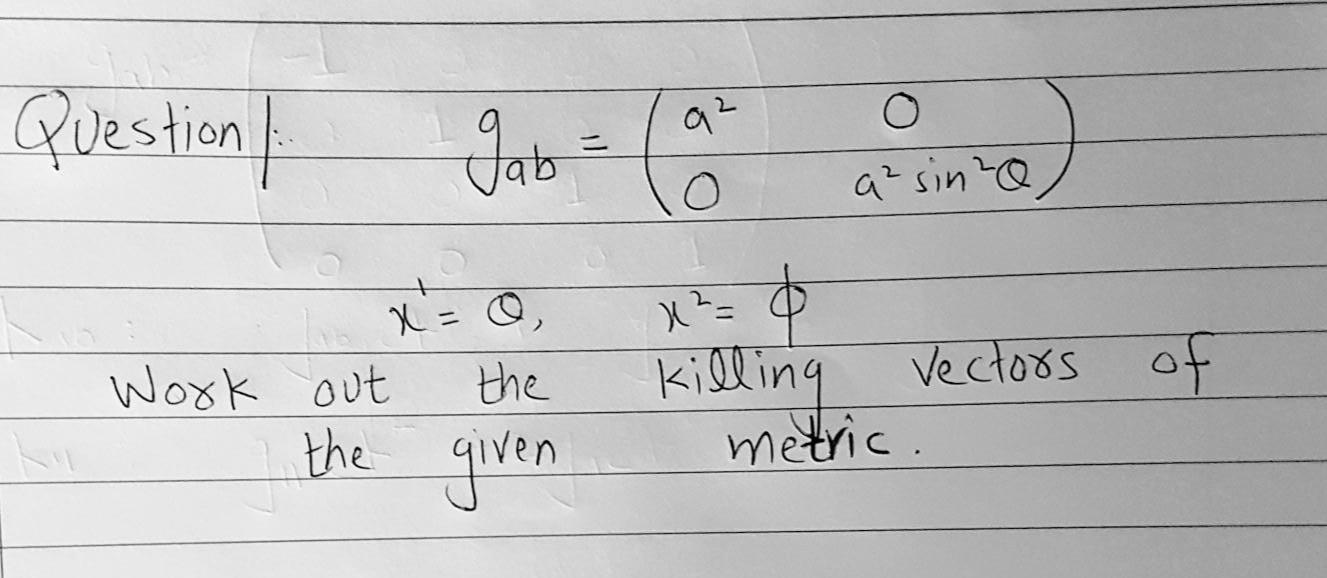 Question/:. g_ab = ( a² 0
0 a² sin²θ )
x¹ = θ, x² = ϕ
Work out the killing vectors of
the given metric.